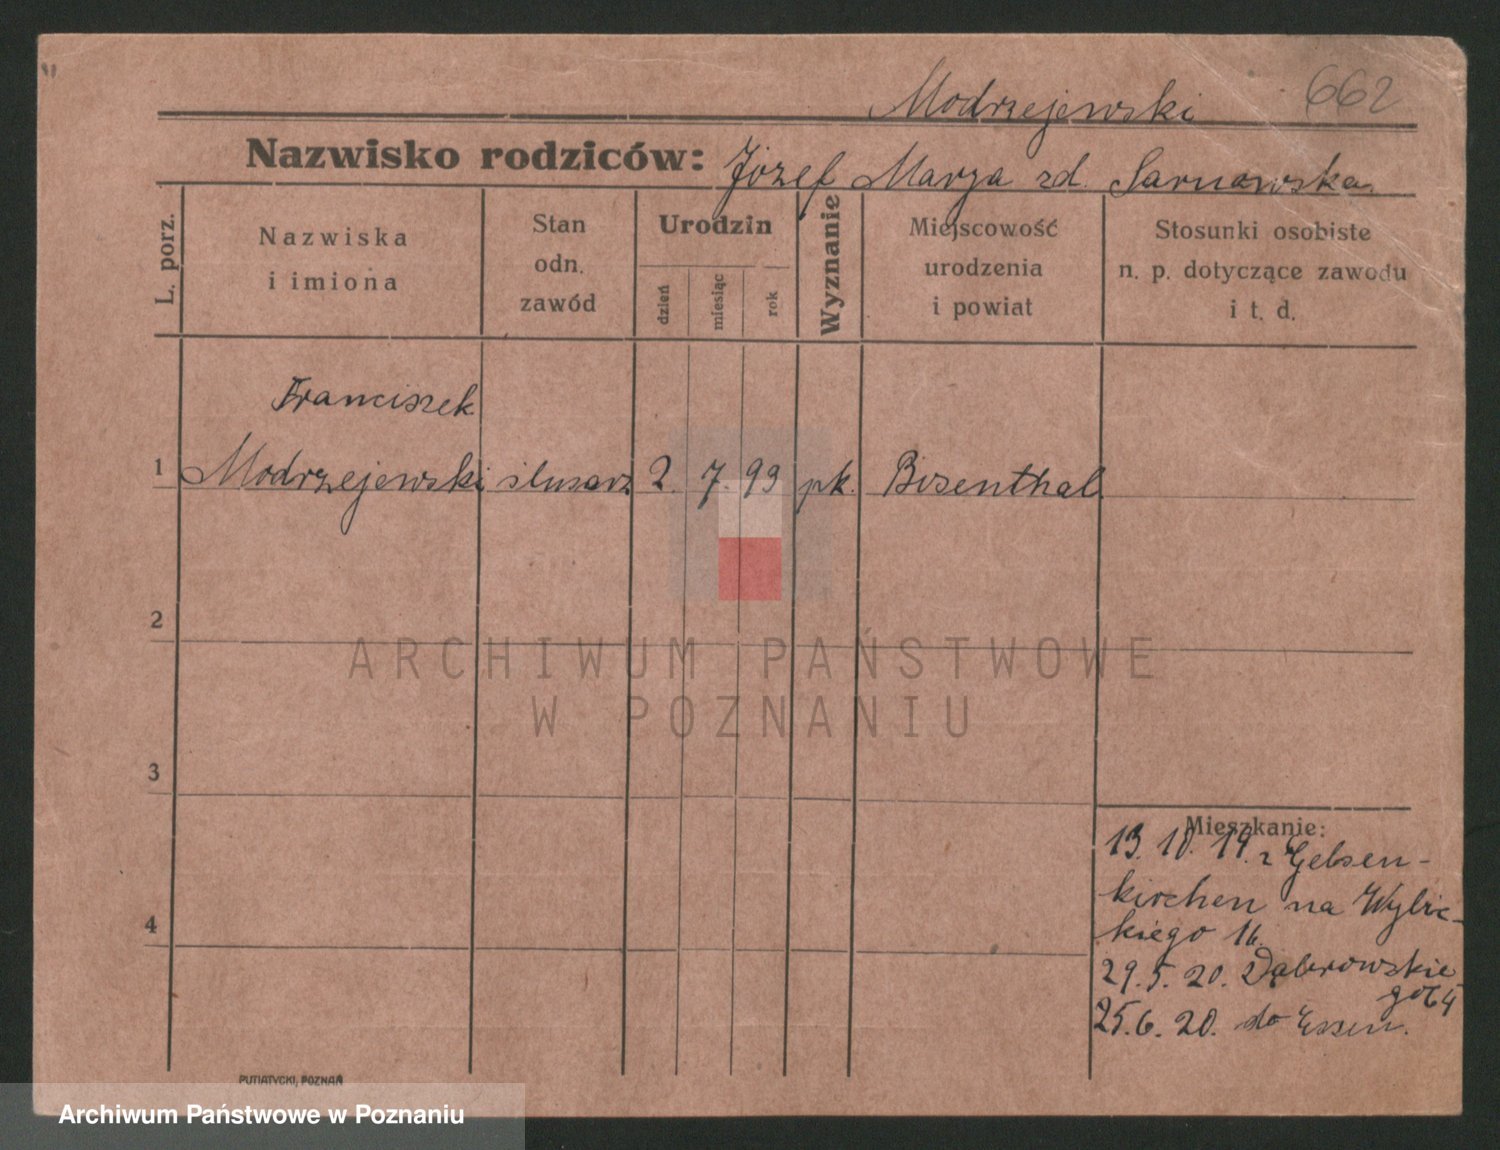 Modrzejewski 662
Nazwisko rodziców: Józef Marya zd. Sarnowska
L. porz.
Nazwiska
i imiona
Stan
odn.
zawód
Urodzin
dzień
miesiąc
rok
Wyznanie
Miejscowość
urodzenia
i powiat
Stosunki osobiste
n. p. dotyczące zawodu
i t. d.
Franciszek
1 Modrzejewski ślusarz 2. 7. 93 rk. Bisenthal
2
3
4
Mieszkanie:
13. 10. 19. z Gelsen-
kirchen na Wybic-
kiego 16.
29. 5. 20. Dąbrowskie
go 64
25. 6. 20. do Essen.
PUTIATYCKI, POZNAŃ
ARCHIWUM PAŃSTWOWE
W POZNANIU
Archiwum Państwowe w Poznaniu